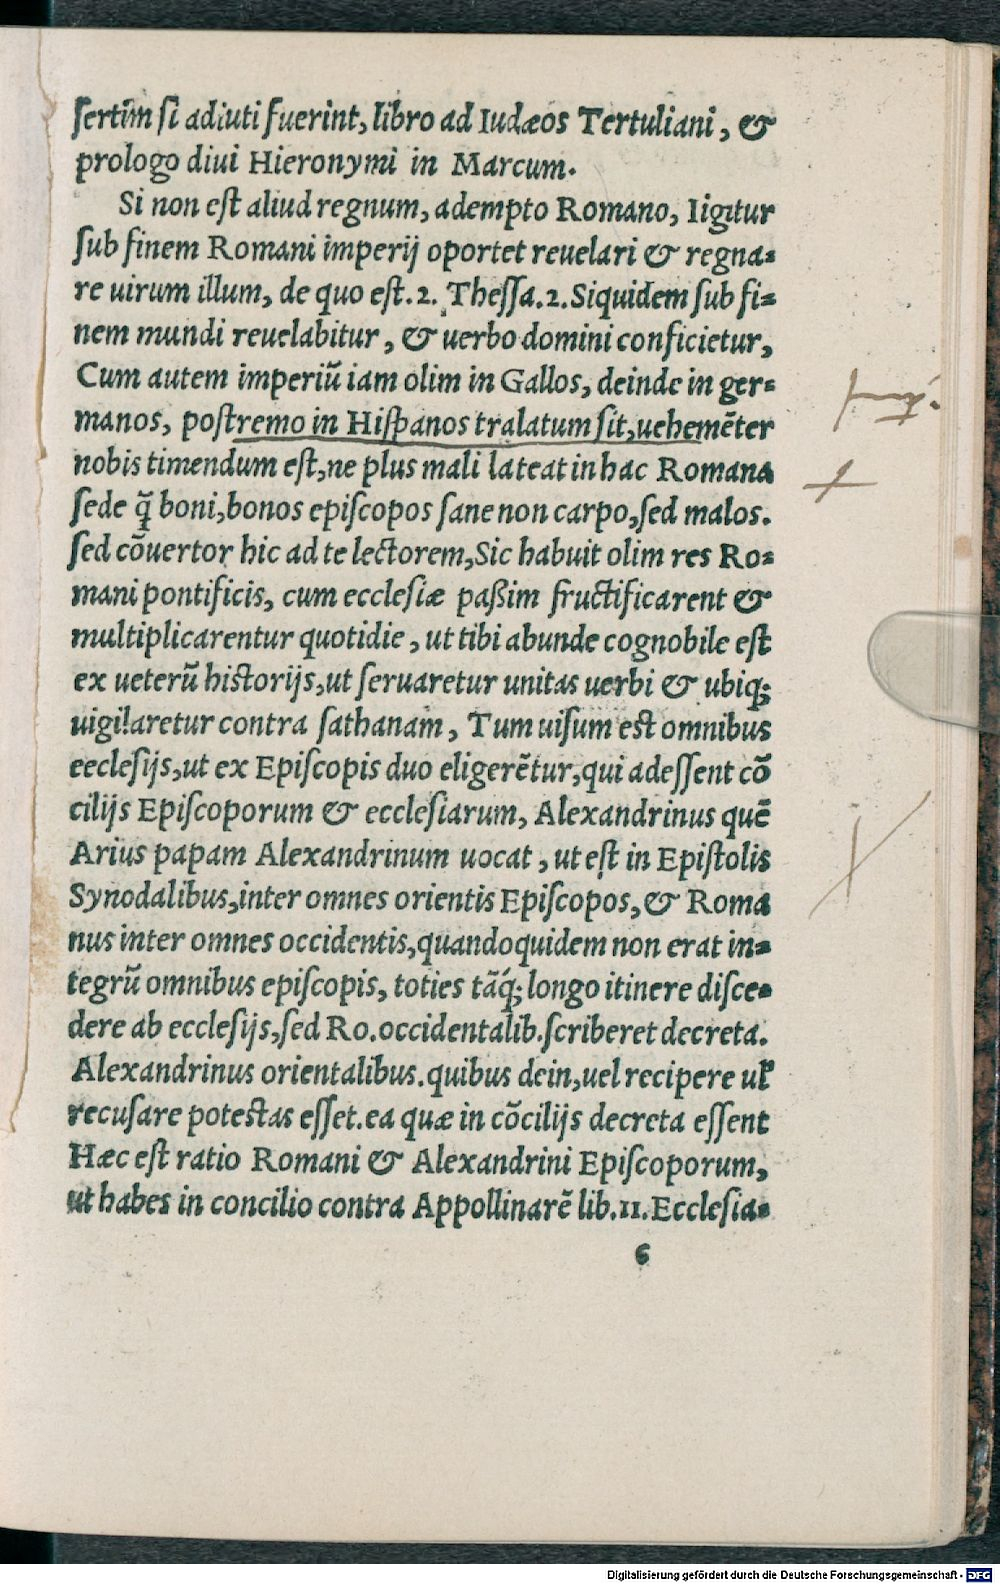 ſertĩm ſi adiuti fuerint, libro ad Iudæos Tertuliani, &
prologo diui Hieronymi in Marcum.
Si non eſt aliud regnum, adempto Romano, Iigitur
ſub finem Romani imperij oportet reuelari & regna=
re uirum illum, de quo eſt. 2. Theſſa. 2. Siquidem ſub fi=
nem mundi reuelabitur, & uerbo domini conficietur,
Cum autem imperiũ iam olim in Gallos, deinde in ger=
manos, poſtremo in Hiſpanos tralatum ſit, uehemẽter
nobis timendum eſt, ne plus mali lateat in hac Romana
ſede q̃ boni, bonos epiſcopos ſane non carpo, ſed malos.
ſed cõuertor hic ad te lectorem, Sic habuit olim res Ro=
mani pontificis, cum eccleſiæ paßim fructificarent &
multiplicarentur quotidie, ut tibi abunde cognobile eſt
ex ueterũ hiſtorijs, ut ſeruaretur unitas uerbi & ubiq;
uigilaretur contra ſathanam, Tum uiſum eſt omnibus
eecleſijs, ut ex Epiſcopis duo eligerẽtur, qui adeſſent cõ
cilijs Epiſcoporum & eccleſiarum, Alexandrinus quẽ
Arius papam Alexandrinum uocat, ut eſt in Epiſtolis
Synodalibus, inter omnes orientis Epiſcopos, & Roma
nus inter omnes occidentis, quandoquidem non erat in=
tegrũ omnibus epiſcopis, toties tãq́; longo itinere diſce=
dere ab eccleſijs, ſed Ro. occidentalib. ſcriberet decreta.
Alexandrinus orientalibus. quibus dein, uel recipere ul̃
recuſare poteſtas eſſet. ea quæ in cõcilijs decreta eſſent
Hæc eſt ratio Romani & Alexandrini Epiſcoporum,
ut habes in concilio contra Appollinarẽ lib. 11. Eccleſia=
6
Digitalisierung gefördert durch die Deutsche Forschungsgemeinschaft - DFG